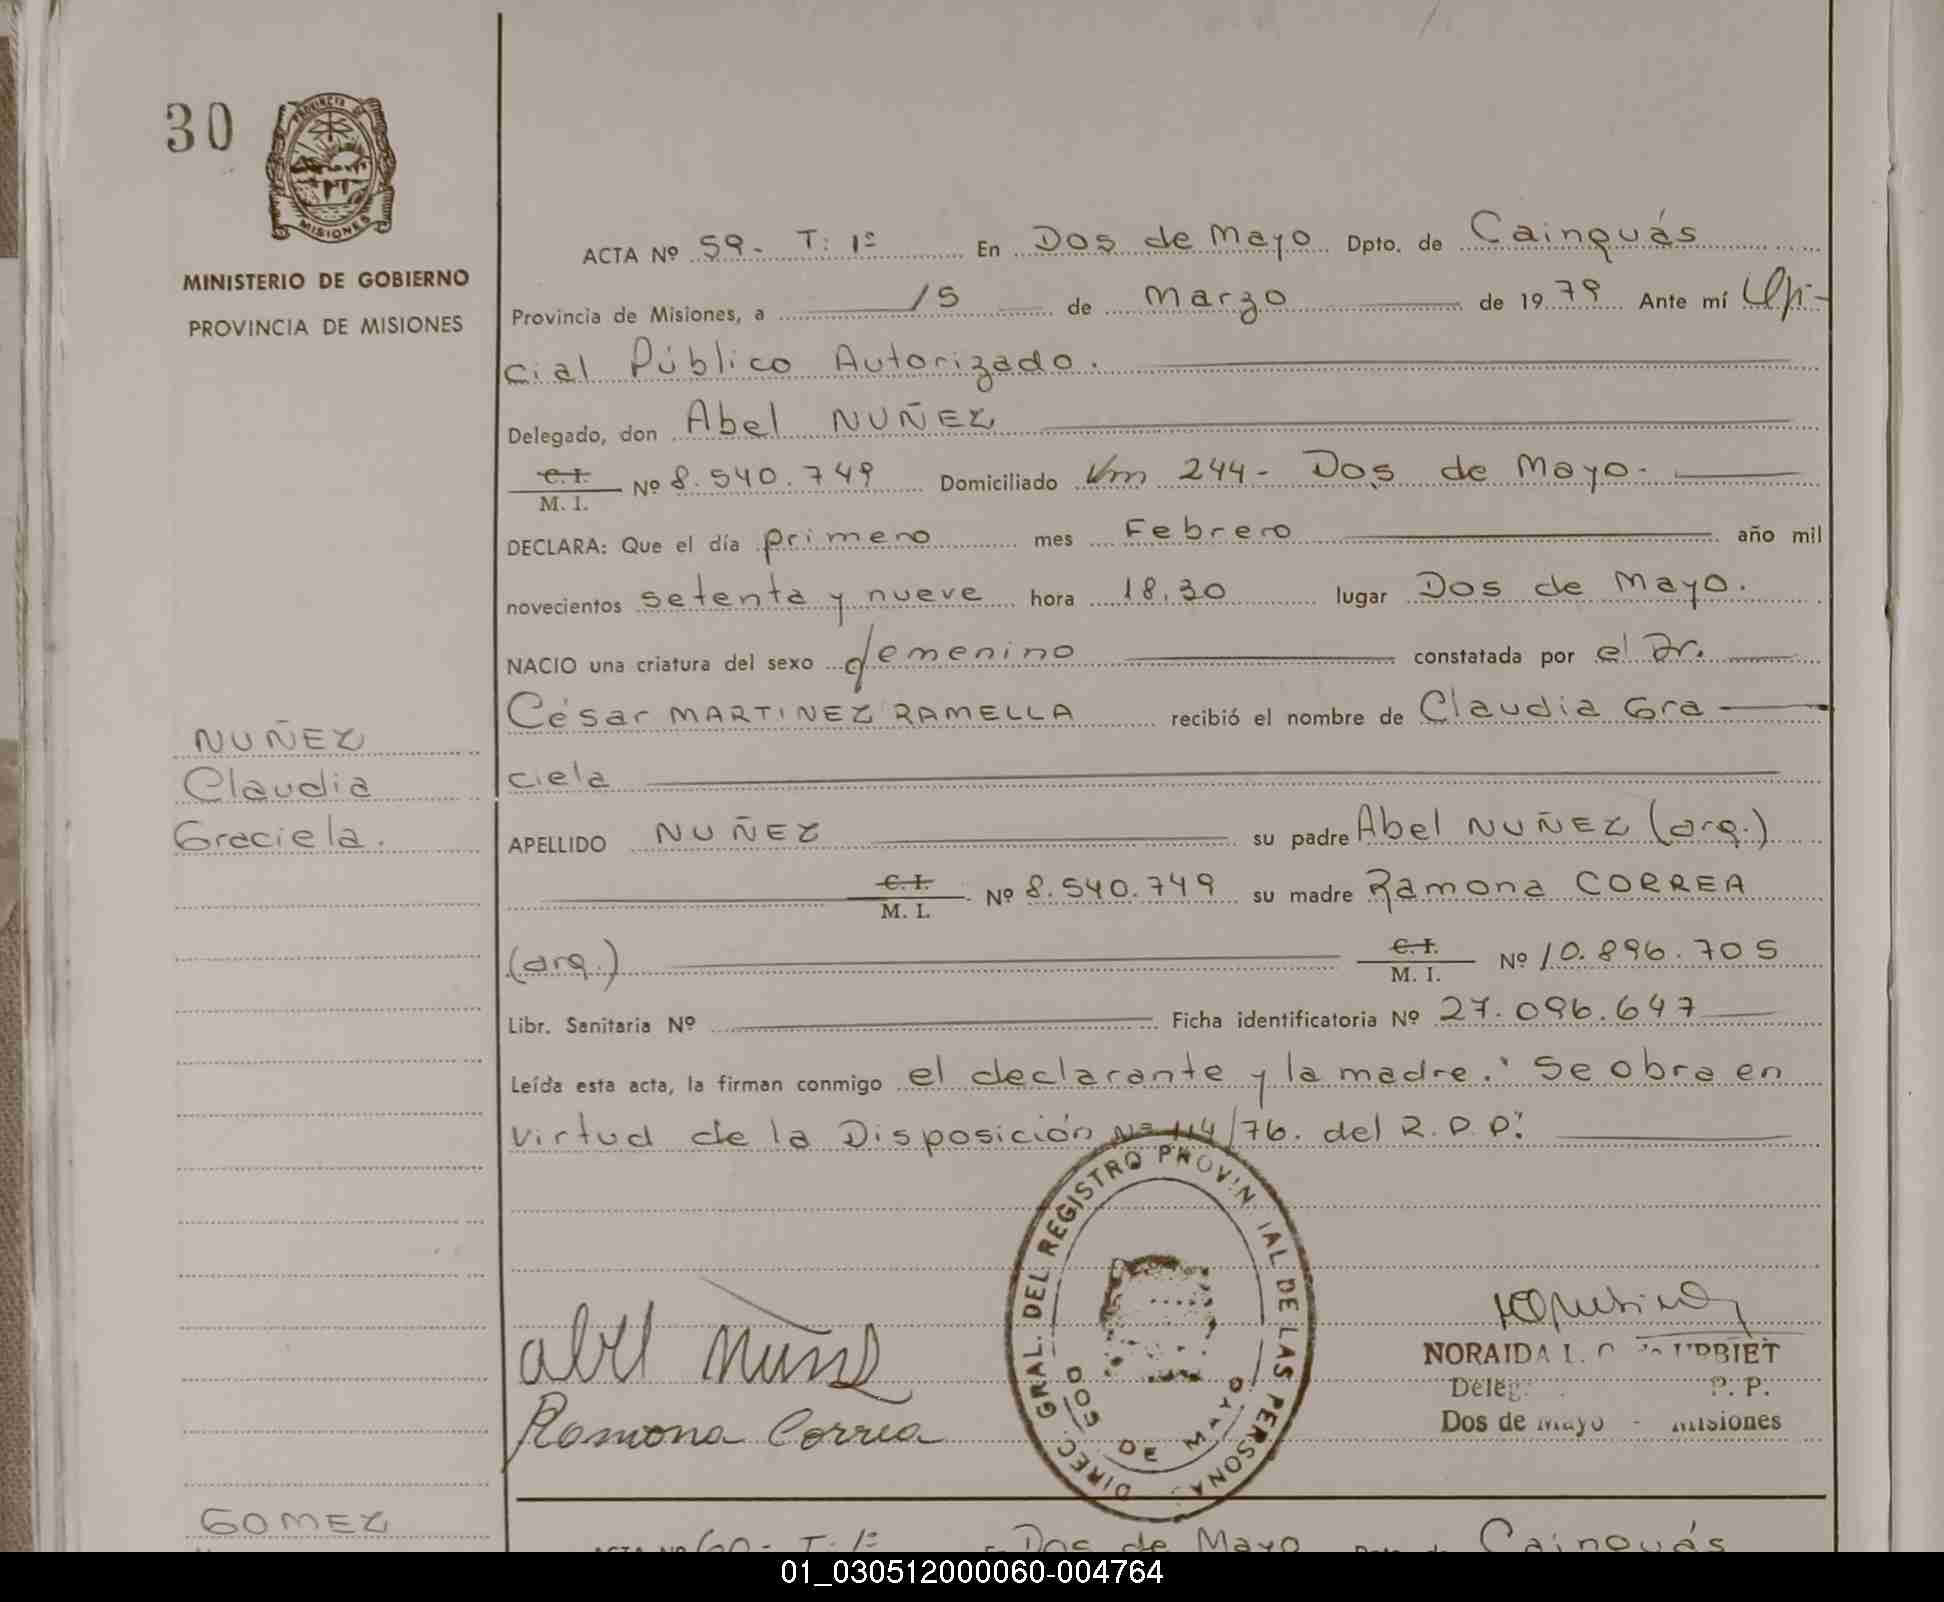 30
PROVINCIA DE
MISIONES
MINISTERIO DE GOBIERNO
PROVINCIA DE MISIONES
NUÑEZ
Claudia
Graciela.
GOMEZ
ACTA Nº 59- T: 1º En Dos de Mayo Dpto. de Cainguás
Provincia de Misiones, a 15 de Marzo de 1979 Ante mí Ofi-
cial Público Autorizado.
Delegado, don Abel NUÑEZ
C. I.
M. I. Nº 8.540.749 Domiciliado Km 244- Dos de Mayo-
DECLARA: Que el día primero mes Febrero año mil
novecientos setenta y nueve hora 18.30 lugar Dos de Mayo.
NACIO una criatura del sexo femenino constatada por el Dr.
César MARTINEZ RAMELLA recibió el nombre de Claudia Gra
ciela
APELLIDO NUÑEZ su padre Abel NUÑEZ (arg.)
C. I.
M. I. Nº 8.540.749 su madre Ramona CORREA
(arg.) C. I.
M. I. Nº 10.896.705
Libr. Sanitaria Nº Ficha identificatoria Nº 27.096.647
Leída esta acta, la firman conmigo el declarante y la madre.· Se obra en
virtud de la Disposición Nº 114/76. del R.P.P:
DIREC. GRAL. DEL REGISTRO PROVIN IAL DE LAS PERSONA
DOS DE MAYO
Abel Nuñez
Ramona Correa
NORAIDA
Deleg P. P.
Dos de Mayo - Misiones
ACTA Nº 60- T: 1º En Dos de Mayo Dpto. de Cainguás
01_030512000060-004764